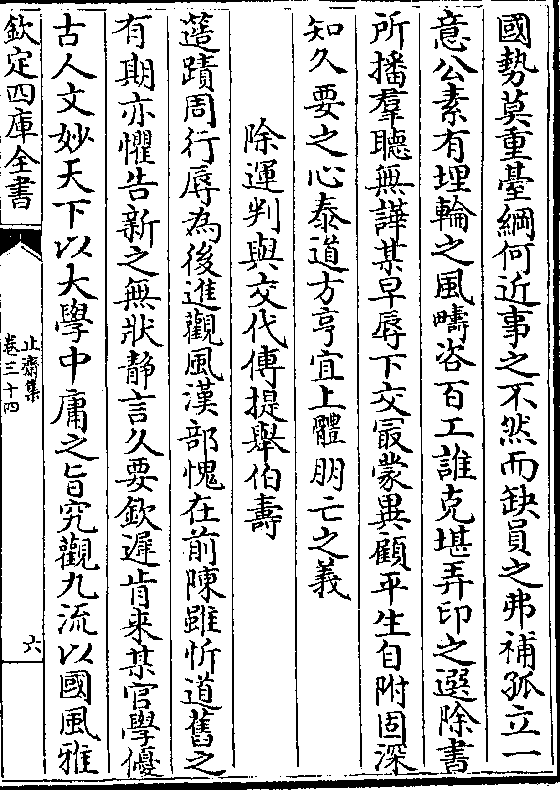 國勢莫重臺綱何近事之不然而缺員之弗補孤立一
意公素有埋輪之風疇咨百工誰克堪弄印之選除書
所播羣聽無譁某早辱下交冣蒙異顧平生自附固深
知久要之心泰道方亨宜上體朋亡之義
除運判與交代傅提舉伯壽
簉蹟周行辱為後進觀風漢部愧在前陳雖忻道舊之
有期亦懼告新之無狀静言久要欽遲肯来某官學優
古人文妙天下以大學中庸之旨究觀九流以國風雅
欽定四庫全書
止齋集
卷三十四
六